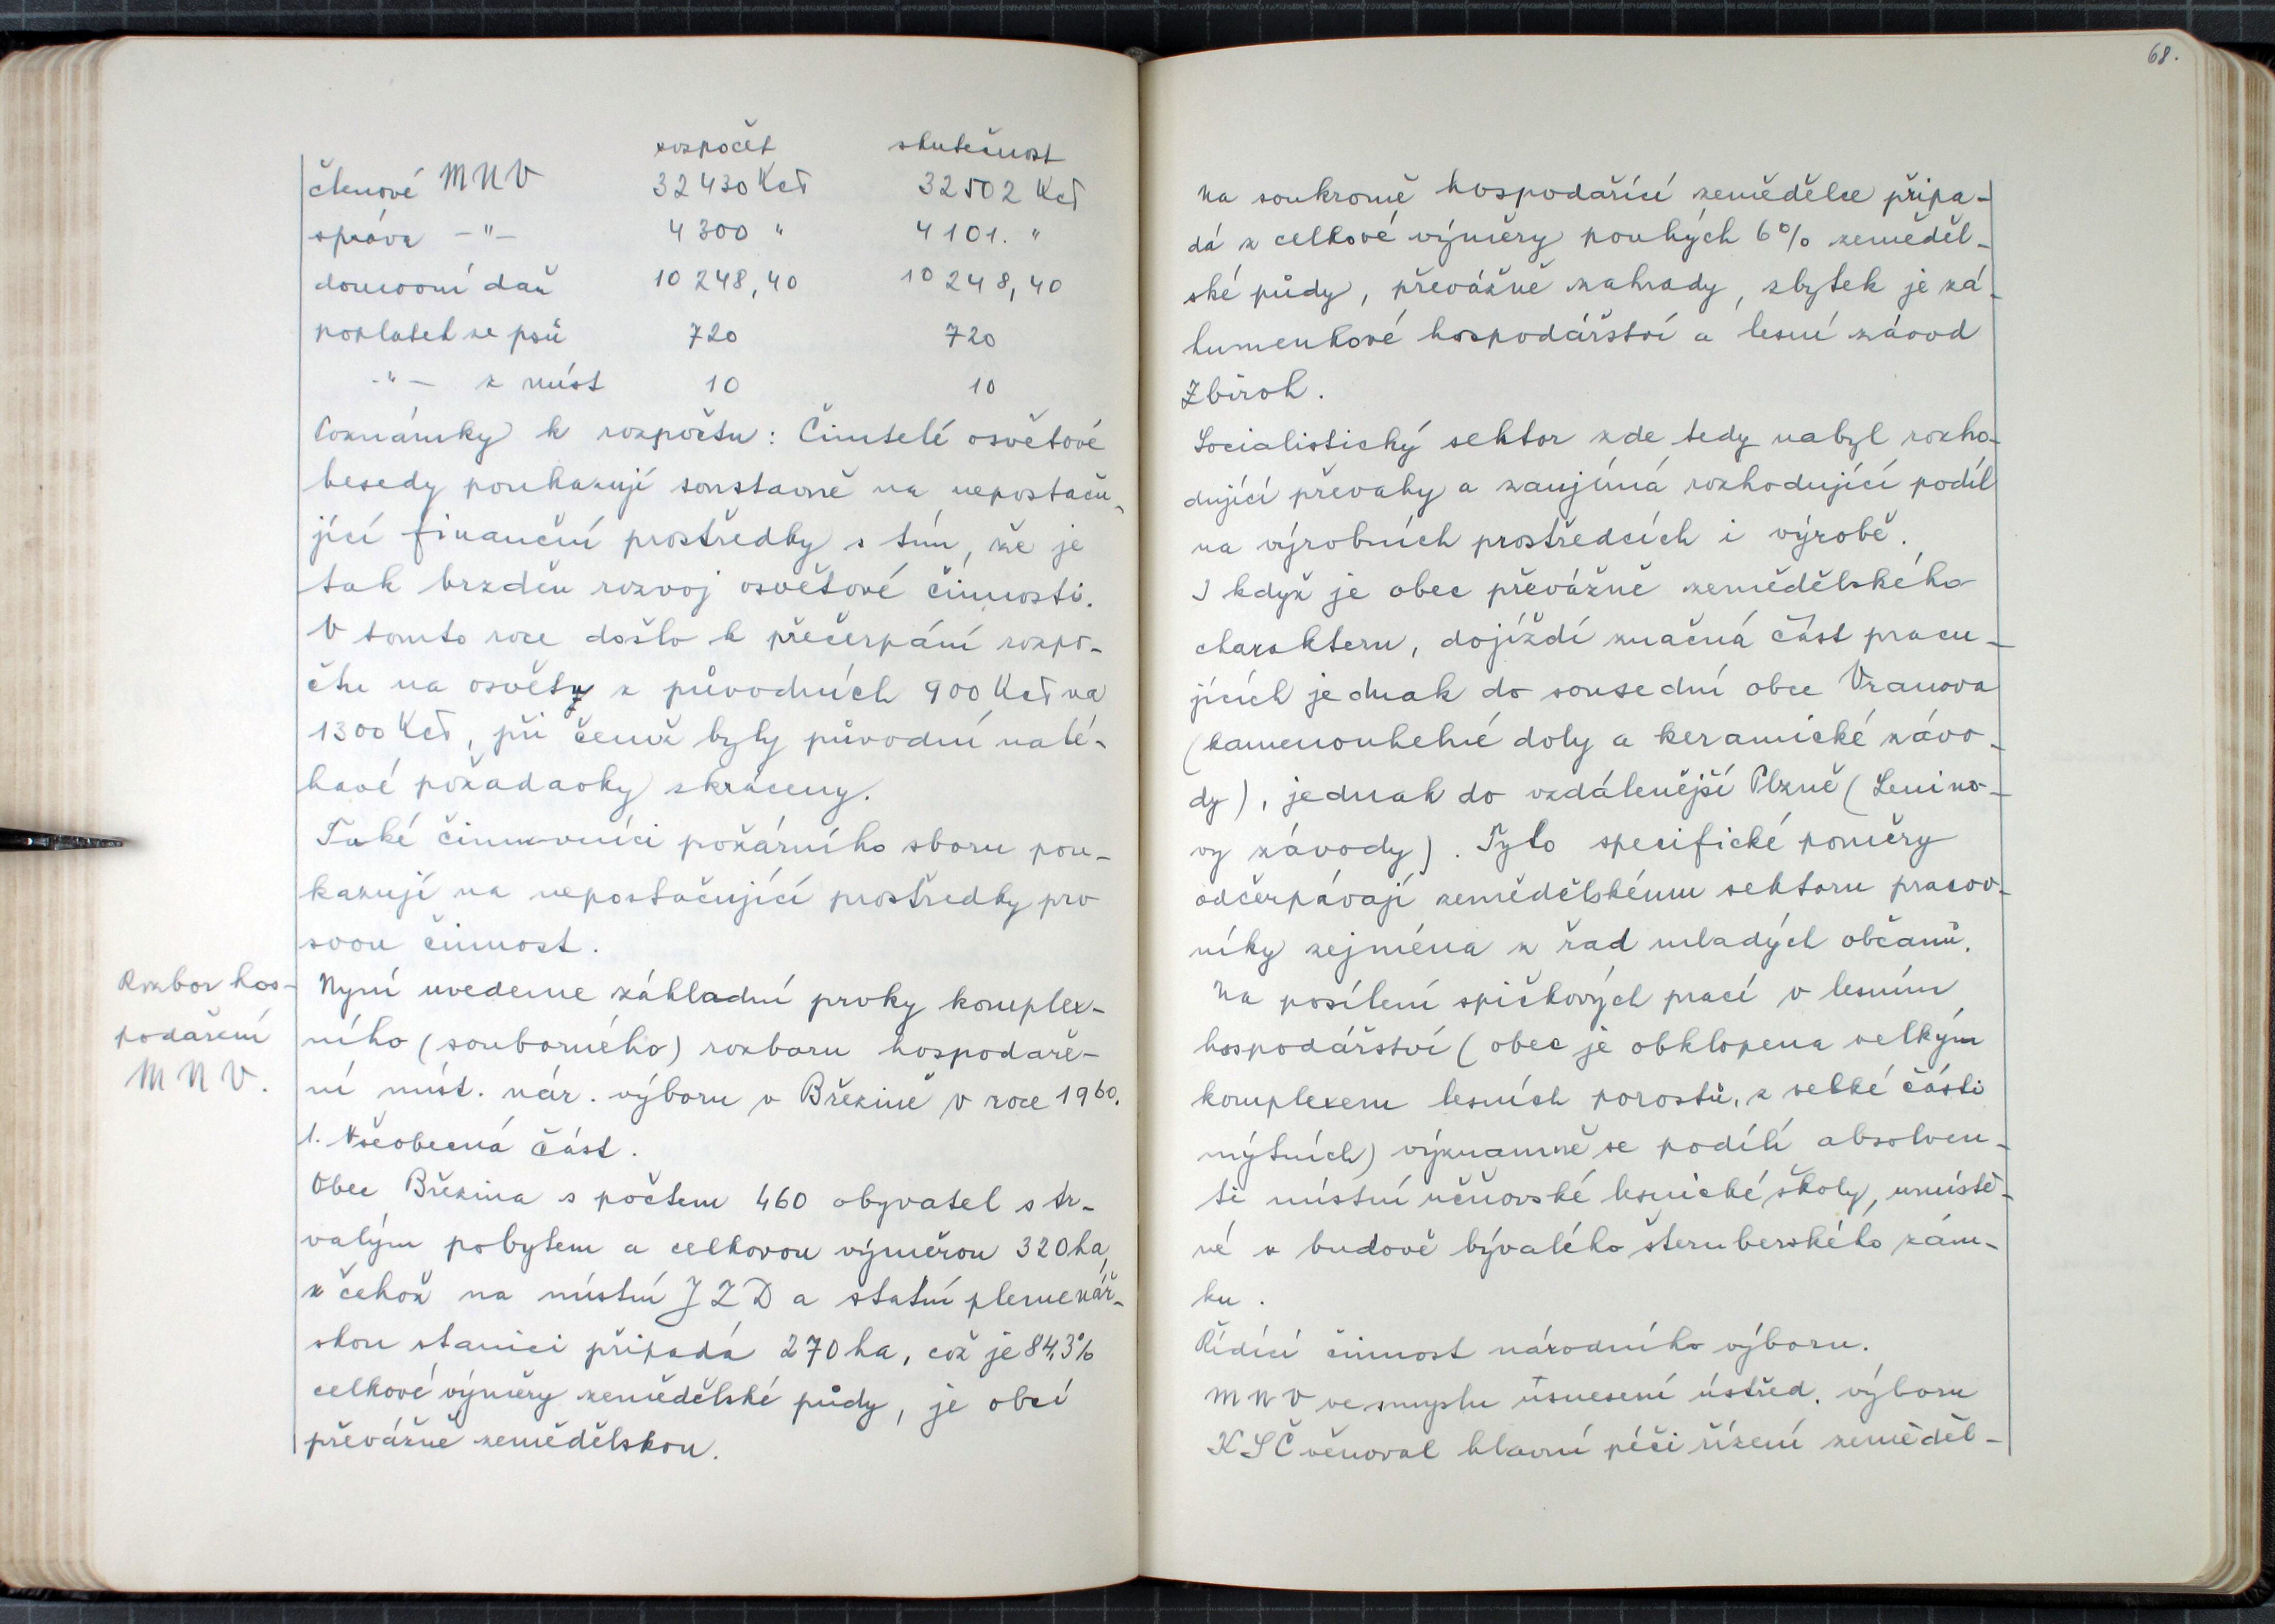 rozpočet skutečnost
členové MNV 32 430 Kčs 32 502 Kčs
správa -"- 4 300 " 4 101. "
domovní daň 10 248,40 10 248,40
poplatek ze psů 720 720
-"- z míst 10 10
Poznámky k rozpočtu: Činitelé osvětové
besedy poukazují soustavně na nepostaču-
jící finanční prostředky s tím, že je
tak brzděn rozvoj osvětové činnosti.
V tomto roce došlo k přečerpání rozpo-
čtu na osvětu z původních 900 Kčs na
1300 Kčs, při čemž byly původní nalé-
havé požadavky zkráceny.
Také činovníci požárního sboru pou-
kazují na nepostačující prostředky pro
svou činnost.
Rozbor hos-
podaření
MNV.
Nyní uvedeme základní prvky komplex-
ního (souborného) rozboru hospodaře-
ní míst. nár. výboru v Březině v roce 1960.
1. Všeobecná část.
Obec Březina s počtem 460 obyvatel s tr-
valým pobytem a celkovou výměrou 320 ha,
z čehož na místní JZD a státní plemenář-
skou stanici připadá 270 ha, což je 84,3%
celkové výměry zemědělské půdy, je obcí
převážně zemědělskou.
68.
Na soukromě hospodařící zemědělce připa-
dá z celkové výměry pouhých 6% zeměděl-
ské půdy, převážně zahrady, zbytek je zá-
humenkové hospodářství a lesní závod
Zbiroh.
Socialistický sektor zde tedy nabyl rozho-
dující převahy a zaujímá rozhodující podíl
na výrobních prostředcích i výrobě.
I když je obec převážně zemědělského
charakteru, dojíždí značná část pracu-
jících jednak do sousední obce Vranova
(kamenouhelné doly a keramické závo-
dy), jednak do vzdálenější Plzně (Lenino-
vy závody). Tyto specifické poměry
odčerpávají zemědělskému sektoru pracov-
níky zejména z řad mladých občanů.
Na posílení špičkových prací v lesním
hospodářství (obec je obklopena velkým
komplexem lesních porostů, z velké části
mýtních) významně se podílí absolven-
ti místní učňovské lesnické školy, umístě-
né v budově bývalého šternberského zám-
ku.
Řídící činnost národního výboru.
MNV ve smyslu usnesení ústřed. výboru
KSČ věnoval hlavní péči řízení zeměděl-